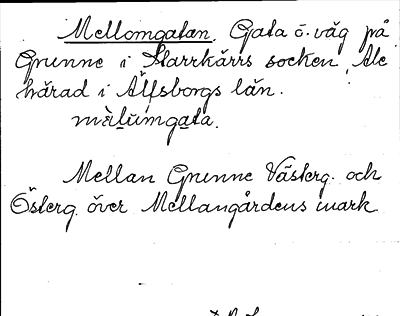 Mellomgatan. Gata o. väg på
Grunne i Starrkärrs socken, Ale
härad i Älfsborgs län.
mèlu̇mgata.
Mellan Grunne Västerg. och
Österg. över Mellangårdens mark